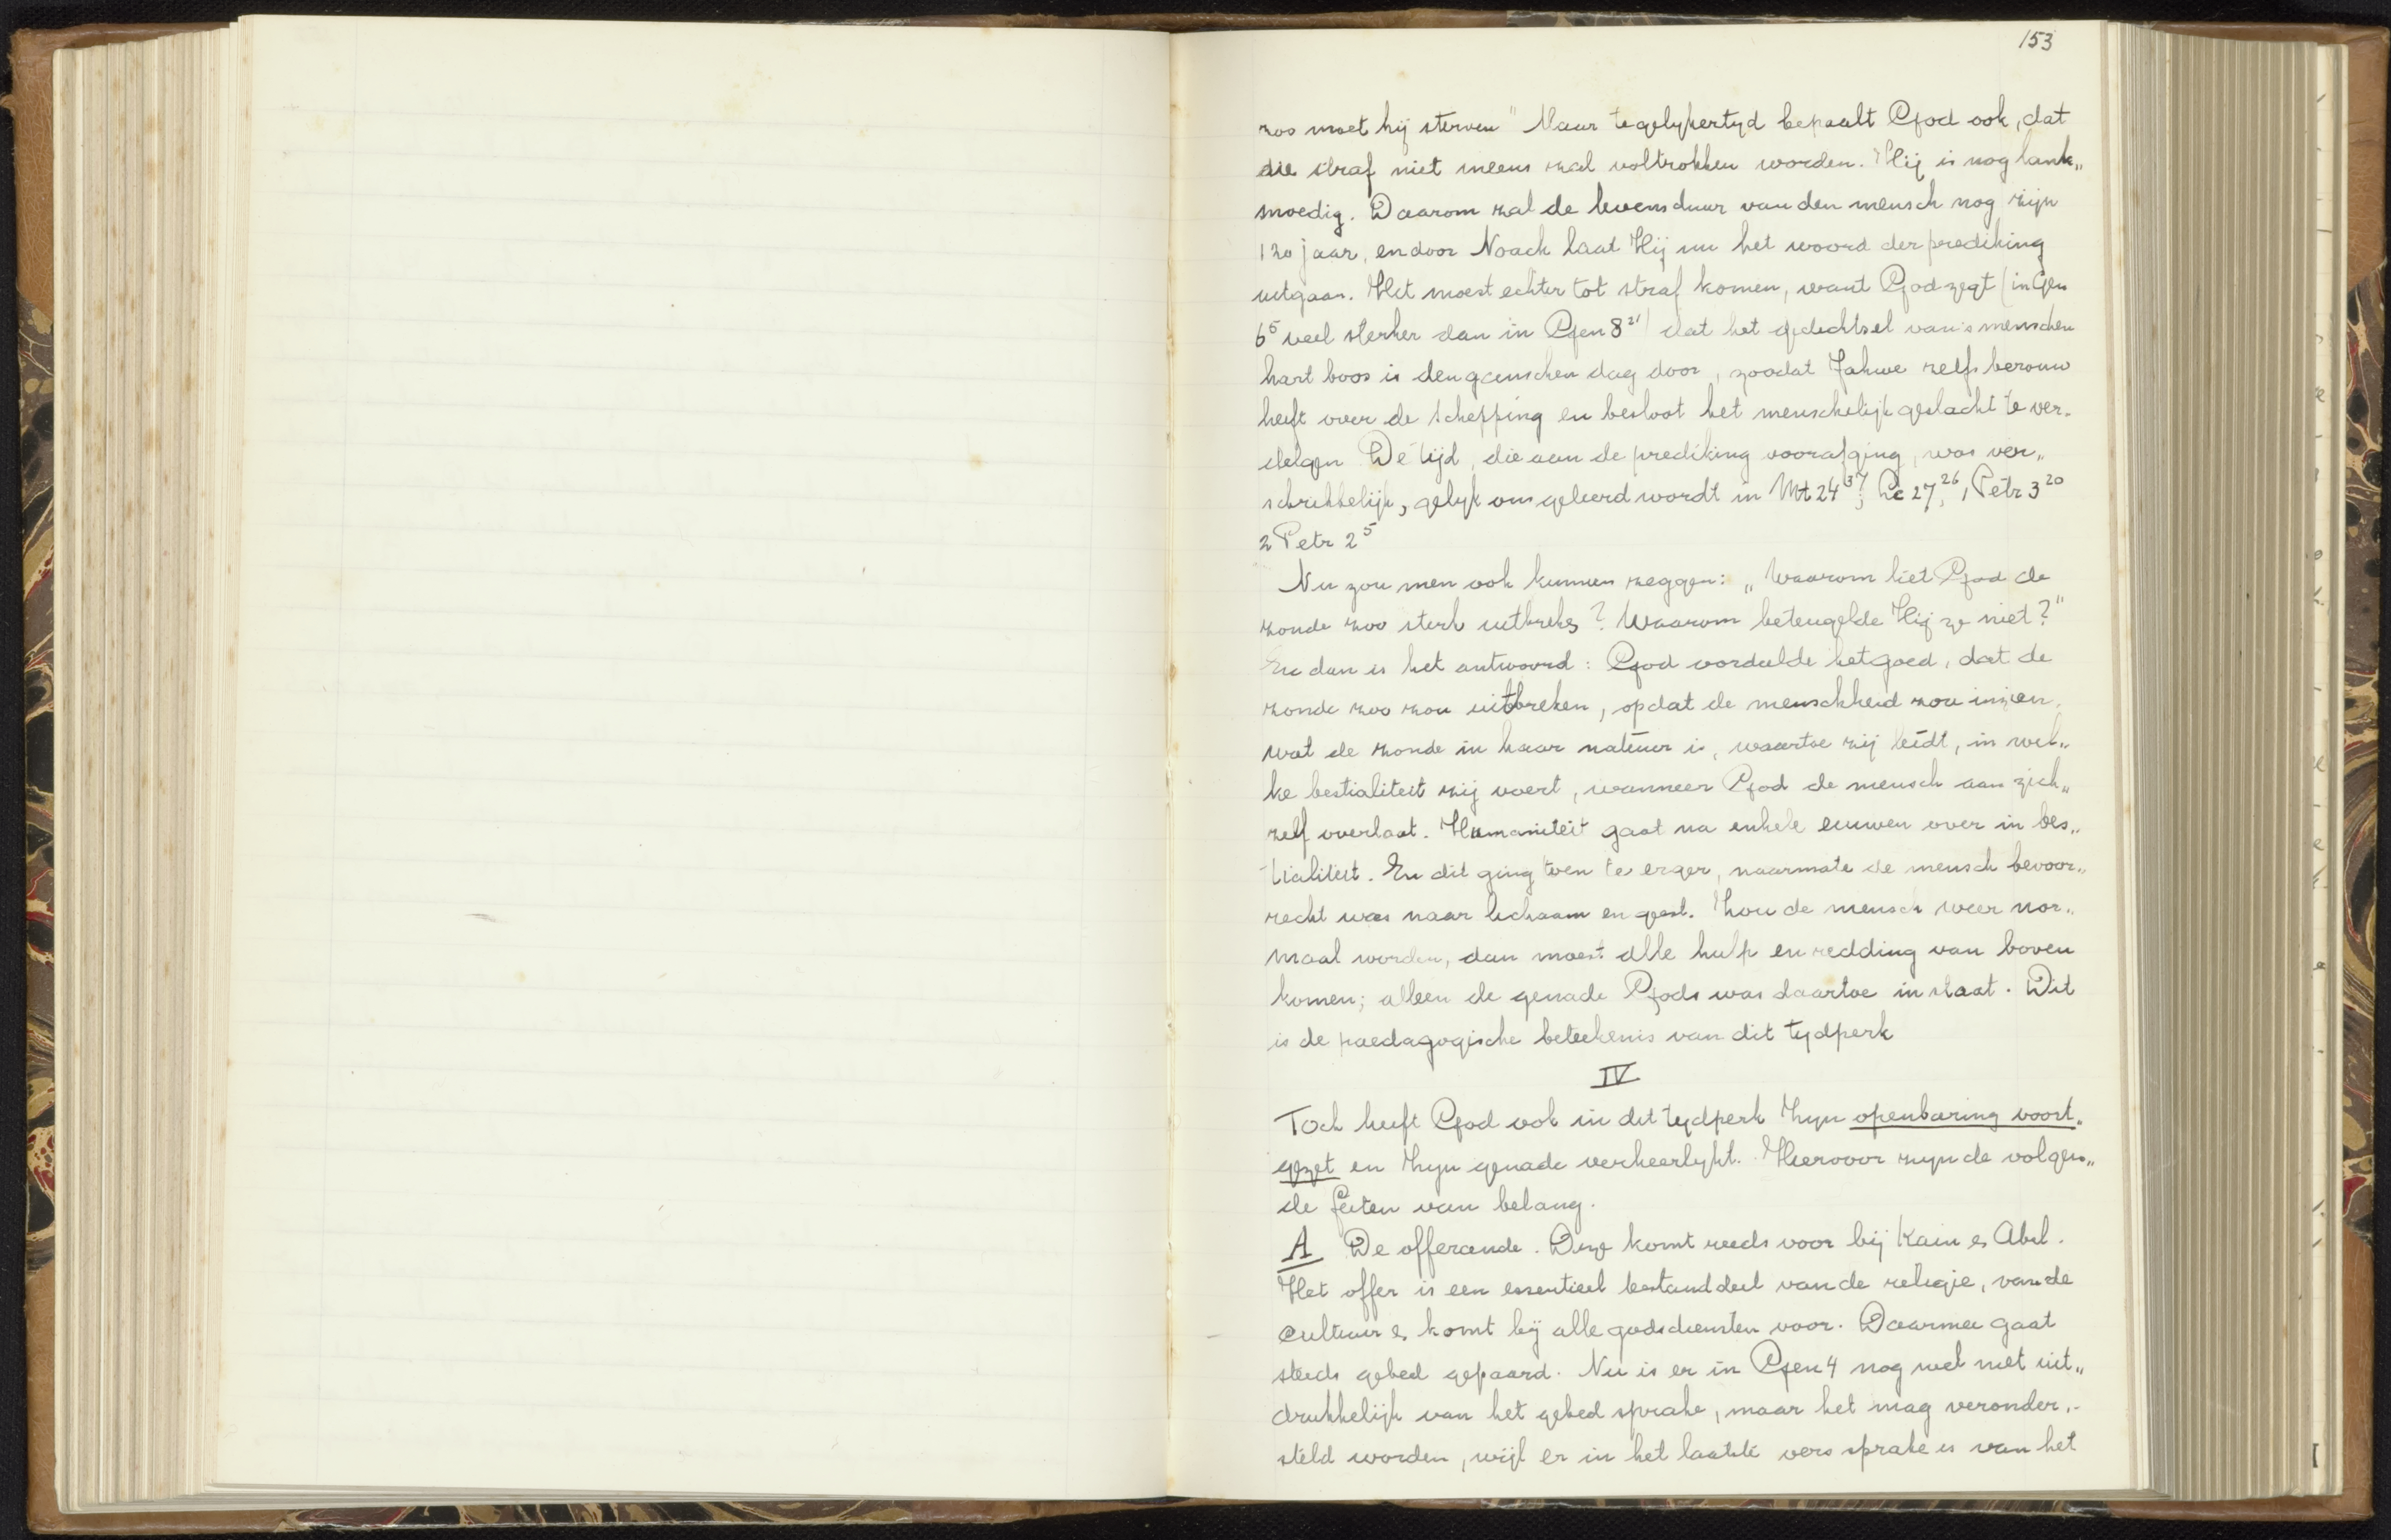 153
zoo moet hij sterven" Maar tegelykertyd bepaalt God ook, dat
die straf niet ineens zal voltrokken worden. Hij is nog lank„
moedig. Daarom zal de levensduur van den mensch nog zijn
120 jaar, en door Noach laat Hij nu het woord der prediking
uitgaan. Het moest echter tot straf komen, want God zegt (in Gen
6⁵ veel sterker dan in Gen 8²¹) dat het gedichtsel van 's menschen
hart boos is den ganschen dag door, zoodat Jahwe zelfs berouw
heeft over de schepping en besloot het menschelijk geslacht te ver„
delgen De tijd, die aan de prediking voorafging, was ver„
schrikkelijk, gelyk ons geleerd wordt in Mt 24³⁷; Lc 27,²⁶, 1 Petr 3²⁰
2 Petr 2⁵
Nu zou men ook kunnen zeggen: „Waarom liet God de
zonde zoo sterk uitbreken? Waarom beteugelde Hij ze niet?"
En dan is het antwoord: God oordeelde het goed, dat de
zonde zoo zou uitbreken, opdat de menschheid zou inzien,
wat de zonde in haar natuur is, waartoe zij leidt, in wel„
ke bestialiteit zij voert, wanneer God de mensch aan zich„
zelf overlaat. Humaniteit gaat na enkele eeuwen over in bes„
tialiteit. En dit ging toen te erger, naarmate de mensch bevoor„
recht was naar lichaam en geest. Zou de mensch weer nor„
maal worden, dan moest alle hulp en redding van boven
komen; alleen de genade Gods was daartoe in staat. Dit
is de paedagogische beteekenis van dit tydperk
IV
Toch heeft God ook in dit tydperk Zyn openbaring voort„
gezet en Zyn genade verheerlykt. Hiervoor zyn de volgen„
de feiten van belang.
A De offerande. Deze komt reeds voor bij Kain en Abel.
Het offer is een essentieel bestanddeel van de religie, van de
cultuur en komt bij alle godsdiensten voor. Daarmee gaat
steeds gebed gepaard. Nu is er in Gen 4 nog wel niet uit„
drukkelijk van het gebed sprake, maar het mag veronder„
steld worden, wijl er in het laatste vers sprake is van het